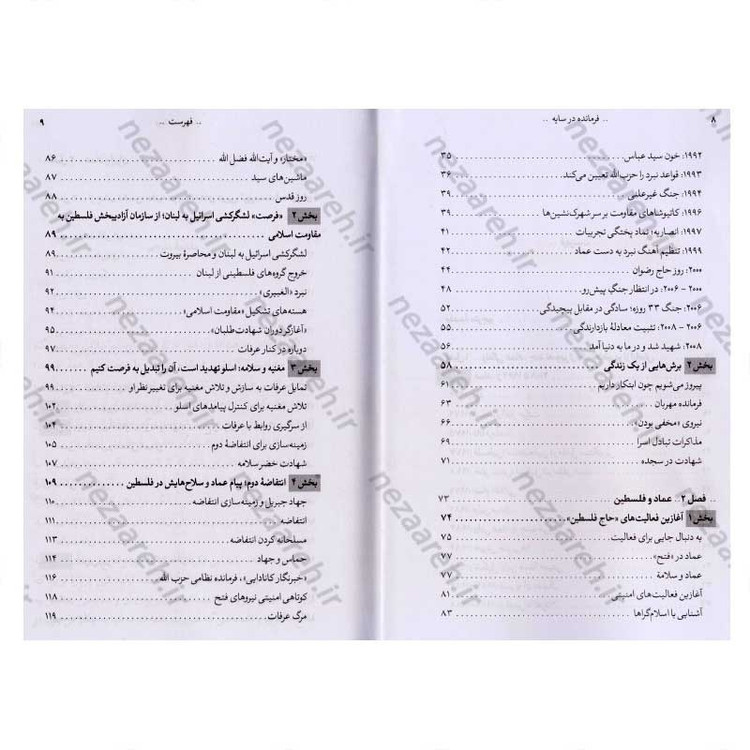 ۸ .. فرمانده در سایه ..
۱۹۹۲: خون سید عباس ۳۵
۱۹۹۳: قواعد نبرد را حزب‌الله تعیین می‌کند. ۳۶
۱۹۹۴: جنگ غیرعلنی ۳۹
۱۹۹۶: کاتیوشاهای مقاومت بر سر شهرک‌نشین‌ها ۳۹
۱۹۹۷: انصاریه؛ نماد پختگی تجربیات ۴۱
۱۹۹۹: تنظیم آهنگ نبرد به دست عماد ۴۲
۲۰۰۰: روز حاج رضوان ۴۴
۲۰۰۰ - ۲۰۰۶: در انتظار جنگ پیش‌رو ۴۸
۲۰۰۶: جنگ ۳۳ روزه؛ سادگی در مقابل پیچیدگی ۵۲
۲۰۰۶ - ۲۰۰۸: تثبیت معادلهٔ بازدارندگی ۵۵
۲۰۰۸: شهید شد و در ما به دنیا آمد ۵۶
بخش ۲ برش‌هایی از یک زندگی ۵۸
پیروز می‌شویم چون ابتکار داریم ۶۱
فرمانده مهربان ۶۳
نیروی «مخفی بودن» ۶۶
مذاکرات تبادل اسرا ۶۹
شهادت در سجده ۷۱
فصل ۲.. عماد و فلسطین ۷۳
بخش ۱ آغازین فعالیت‌های «حاج فلسطین» ۷۴
به دنبال جایی برای فعالیت ۷۵
عماد در «فتح» ۷۷
عماد و سلامة ۷۷
آغازین فعالیت‌های امنیتی ۸۱
آشنایی با اسلام‌گراها ۸۳
.. فهرست .. ۹
«مختار» و آیت‌الله فضل الله ۸۶
ماشین‌های سید ۸۷
روز قدس ۸۸
بخش ۲ «فرصت» لشگرکشی اسرائیل به لبنان؛ از سازمان آزادیبخش فلسطین به
مقاومت اسلامی ۸۹
لشگرکشی اسرائیل به لبنان و محاصرهٔ بیروت ۸۹
خروج گروه‌های فلسطینی از لبنان ۹۱
نبرد «الغبیری»
هسته‌های تشکیل «مقاومت اسلامی» ۹۴
«آغازگر دوران شهادت‌طلبان» ۹۵
دوباره در کنار عرفات ۹۷
بخش ۳ مغنیه و سلامه: اسلو تهدید است، آن را تبدیل به فرصت کنیم ۹۹
تمایل عرفات به سازش و تلاش مغنیه برای تغییر نظر او ۹۹
تلاش مغنیه برای کنترل پیامدهای اسلو ۱۰۲
از سرگیری روابط با عرفات ۱۰۴
زمینه‌سازی برای انتفاضهٔ دوم ۱۰۵
شهادت خضر سلامه ۱۰۷
بخش ۴ انتفاضهٔ دوم؛ پیام عماد و سلاح‌هایش در فلسطین ۱۰۹
جهاد جبریل و زمینه‌سازی انتفاضه ۱۱۰
انتفاضه ۱۱۱
مسلحانه کردن انتفاضه ۱۱۳
حماس و جهاد ۱۱۴
«خبرنگار کانادایی»، فرمانده نظامی حزب الله ۱۱۶
کوتاهی امنیتی نیروهای فتح ۱۱۸
مرگ عرفات ۱۱۹
nezaareh.ir